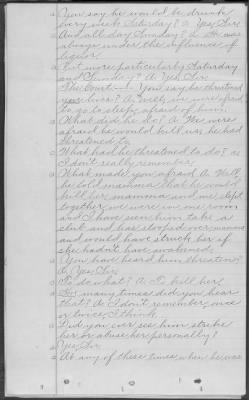 Q You say he would be drunk
every week Saturday? A Yes Sir
Q And all day Sunday? A He was
always under the influence of
liquor
Q But more particularly Saturday
and Sunday? A Yes Sir
The Court — You say he threatened
your lives? A Yes Sir, we were afraid
to go to sleep, afraid of him.
Q What did he do? A We were
afraid he would kill us, he had
threatened to
Q What had he threatened to do? A
I don't really remember
Q What made you afraid A Well
he told mamma that he would
kill her, mamma and me slept
together, we were in one room
and I have seen him take a
club and has stooped over mamma
and would have struck her if
she hadn't have awakened.
Q You have heard him threaten?
A Yes Sir
Q To do what? A To kill her
Q How many times did you hear
that? A I don't remember, once
or twice I think
Q Did you ever see him strike
her or abuse her personally?
A Yes Sir
Q At any of these times when he was